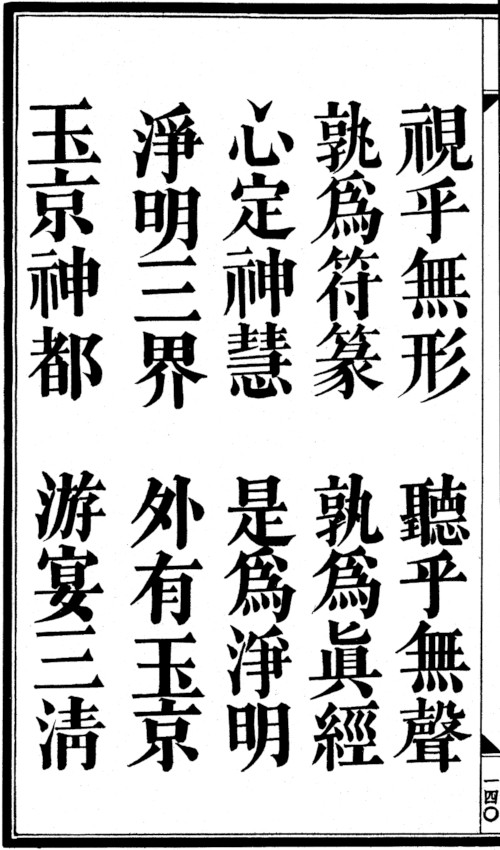 視乎無形　聽乎無聲
孰爲符篆　孰爲眞經
心定神慧　是爲淨明
淨明三界　外有玉京
玉京神都　游宴三清
一四〇